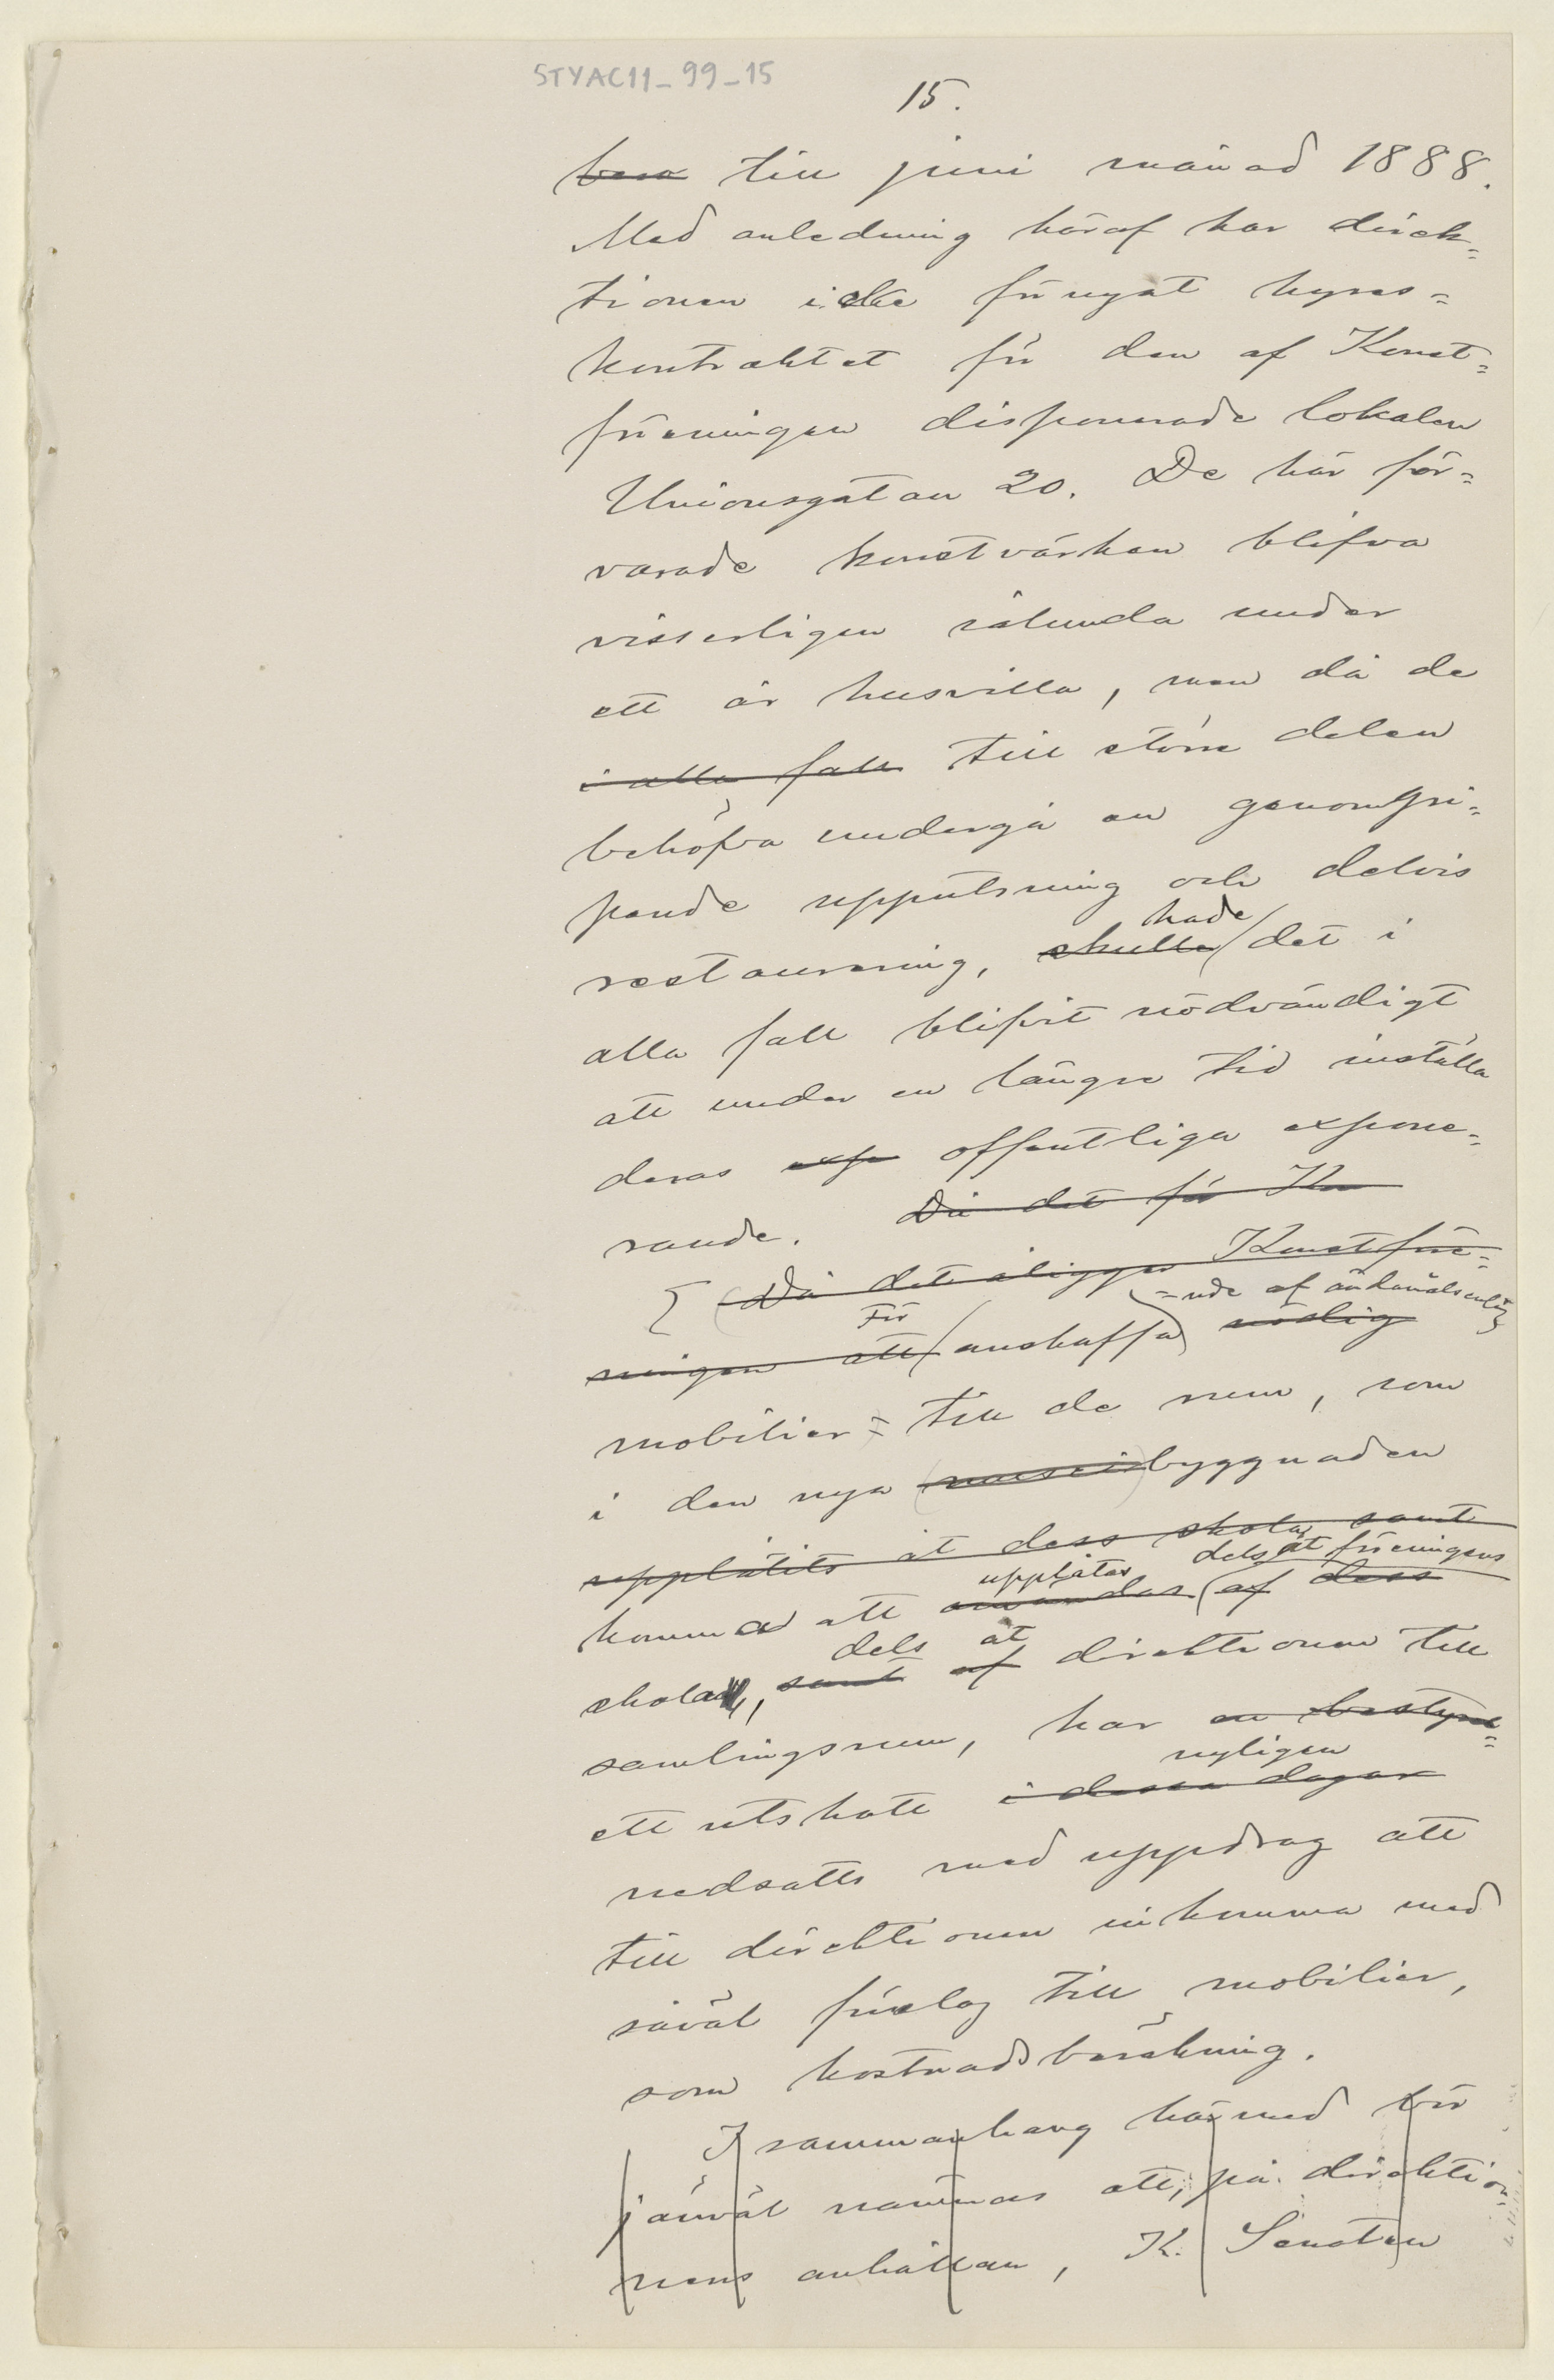 STYAC11_99_15
15.
bera till juni månad 1888.
Med anledning häraf har direk=
tionen icke förnyat hyres=
kontraktet för den af Konst=
föreningen disponerade lokalen
Unionsgatan 20. De här för=
varade konstvärken blifva
visserligen sålunda under
ett år husvilla, men då de
i alla fall till större delen
behöfva undergå en genomgri=
pande upputsning och delvis
restaurering, skulle hade det i
alla fall blifvit nödvändigt
att under en längre tid inställa
deras exp offentliga expone=
rande. Då det för Ko
Då det åligger Konstföre=
ningen att För anskaffa =nde af ändamålsenlig nödig
mobilier = till de rum, som
i den nya musei byggnaden
upplåtits åt dess skola samt
komma att användas upplåtas af dess dels åt föreningens
skola, samt dels af åt direktionen till
samlingsrum, har en bestyrel=
ett utskott i dessa dagar nyligen
nedsatts med uppdrag att
till direktionen inkomma med
såväl förslag till mobilier,
som kostnadsberäkning.
I sammanhang härmed bör
jämväl nämnas att, på direktio=
nens anhållan, K. Senaten